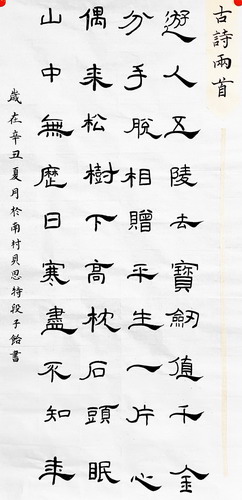 古詩兩首
遊人五陵去寶劒值千金
分手脫相贈平生一片心
偶来松樹下高枕石頭眠
山中無歷日寒盡不知年
歲在辛丑夏月於南村貝思特段子飴書